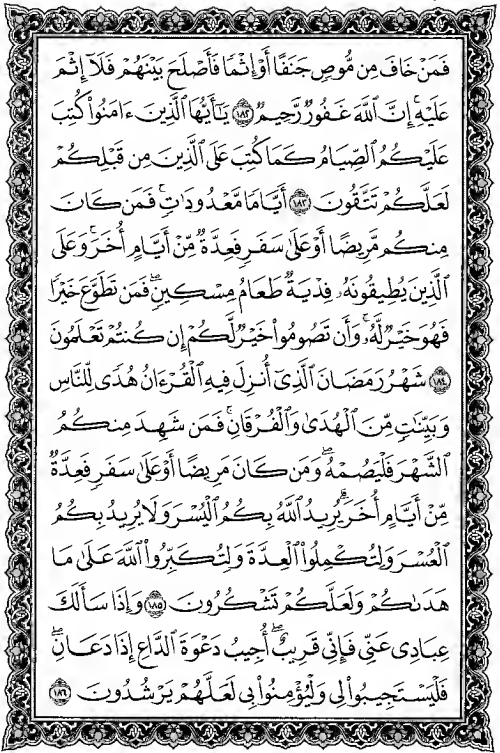 فَمَنْ خَافَ مِن مُّوصٍ جَنَفًا أَوْ إِثْمًا فَأَصْلَحَ بَيْنَهُمْ فَلَآ إِثْمَ
عَلَيْهِ ۚ إِنَّ ٱللَّهَ غَفُورٌ رَّحِيمٌ ١٨٢ يَٰٓأَيُّهَا ٱلَّذِينَ ءَامَنُوا۟ كُتِبَ
عَلَيْكُمُ ٱلصِّيَامُ كَمَا كُتِبَ عَلَى ٱلَّذِينَ مِن قَبْلِكُمْ
لَعَلَّكُمْ تَتَّقُونَ ١٨٣ أَيَّامًا مَّعْدُودَٰتٍ ۚ فَمَن كَانَ
مِنكُم مَّرِيضًا أَوْ عَلَىٰ سَفَرٍ فَعِدَّةٌ مِّنْ أَيَّامٍ أُخَرَ ۚ وَعَلَى
ٱلَّذِينَ يُطِيقُونَهُۥ فِدْيَةٌ طَعَامُ مِسْكِينٍ ۖ فَمَن تَطَوَّعَ خَيْرًا
فَهُوَ خَيْرٌ لَّهُۥ ۚ وَأَن تَصُومُوا۟ خَيْرٌ لَّكُمْ إِن كُنتُمْ تَعْلَمُونَ
١٨٤ شَهْرُ رَمَضَانَ ٱلَّذِىٓ أُنزِلَ فِيهِ ٱلْقُرْءَانُ هُدًى لِّلنَّاسِ
وَبَيِّنَٰتٍ مِّنَ ٱلْهُدَىٰ وَٱلْفُرْقَانِ ۚ فَمَن شَهِدَ مِنكُمُ
ٱلشَّهْرَ فَلْيَصُمْهُ ۖ وَمَن كَانَ مَرِيضًا أَوْ عَلَىٰ سَفَرٍ فَعِدَّةٌ
مِّنْ أَيَّامٍ أُخَرَ ۗ يُرِيدُ ٱللَّهُ بِكُمُ ٱلْيُسْرَ وَلَا يُرِيدُ بِكُمُ
ٱلْعُسْرَ وَلِتُكْمِلُوا۟ ٱلْعِدَّةَ وَلِتُكَبِّرُوا۟ ٱللَّهَ عَلَىٰ مَا
هَدَىٰكُمْ وَلَعَلَّكُمْ تَشْكُرُونَ ١٨٥ وَإِذَا سَأَلَكَ
عِبَادِى عَنِّى فَإِنِّى قَرِيبٌ ۖ أُجِيبُ دَعْوَةَ ٱلدَّاعِ إِذَا دَعَانِ ۖ
فَلْيَسْتَجِيبُوا۟ لِى وَلْيُؤْمِنُوا۟ بِى لَعَلَّهُمْ يَرْشُدُونَ ١٨٦